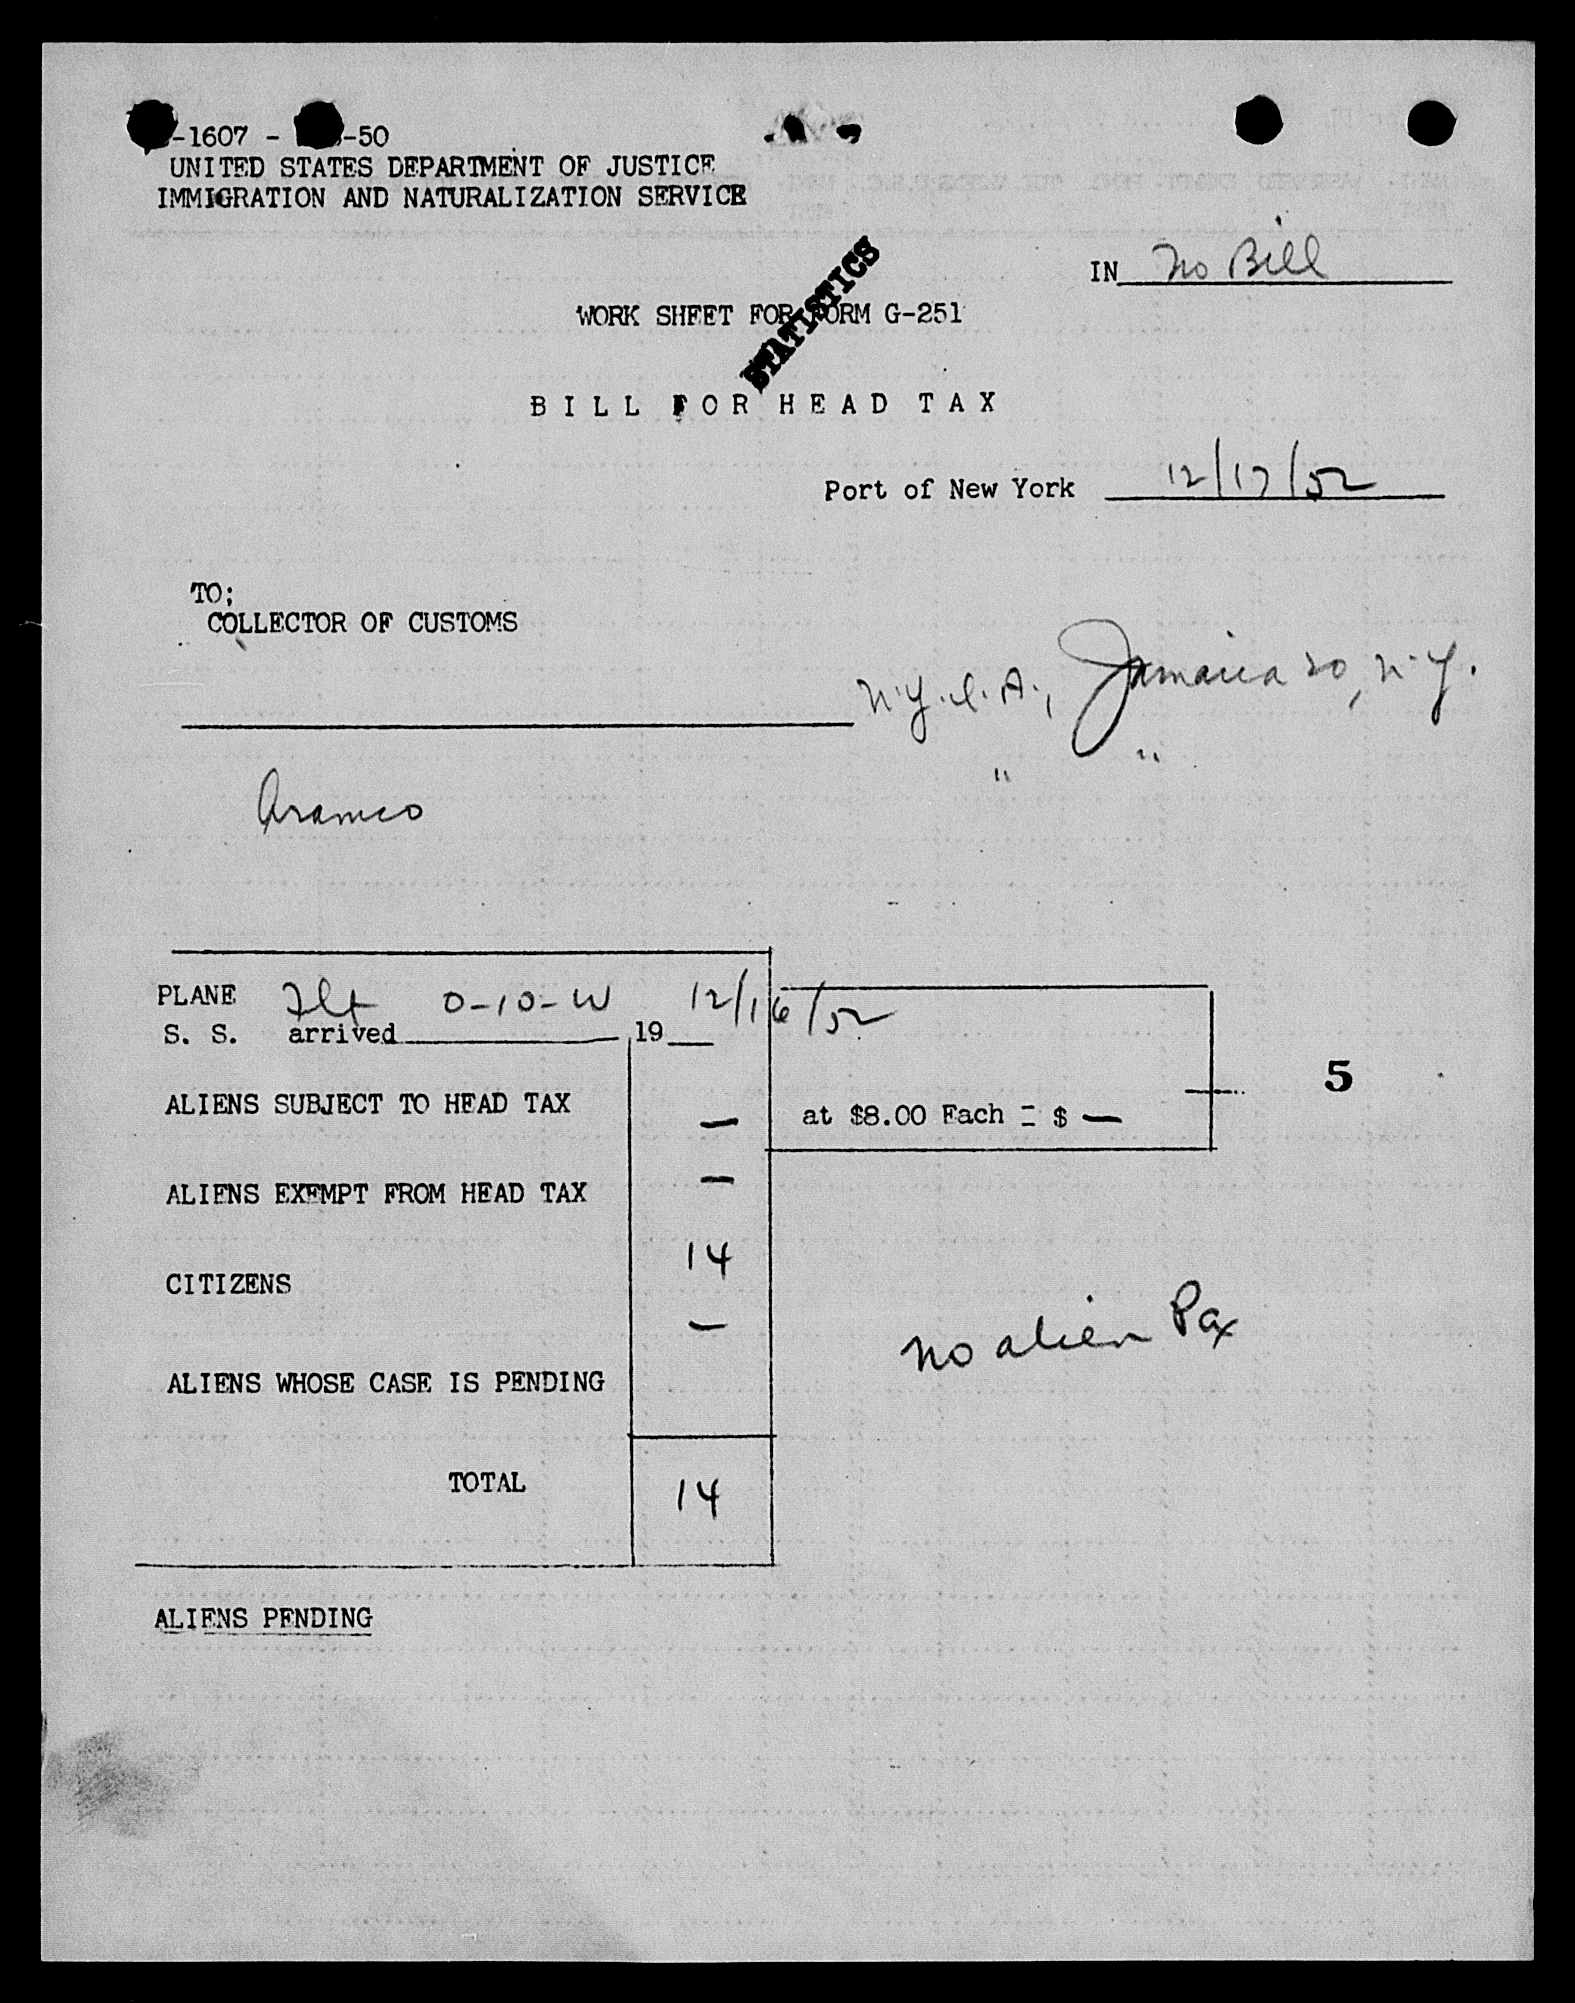 -1607 - -50
UNITED STATES DEPARTMENT OF JUSTICE
IMMIGRATION AND NATURALIZATION SERVICE
IN No Bill
STATISTICS
WORK SHEET FOR FORM G-251
BILL FOR HEAD TAX
Port of New York 12/17/52
TO;
COLLECTOR OF CUSTOMS
N.Y.I.A., Jamaica 20, N.Y.
" "
Aramco
PLANE Flt O-10-W 12/16/52
S. S. arrived 19
5
ALIENS SUBJECT TO HEAD TAX — at $8.00 Each = $ —
ALIENS EXEMPT FROM HEAD TAX —
CITIZENS 14
No alien Pax
ALIENS WHOSE CASE IS PENDING —
TOTAL 14
ALIENS PENDING